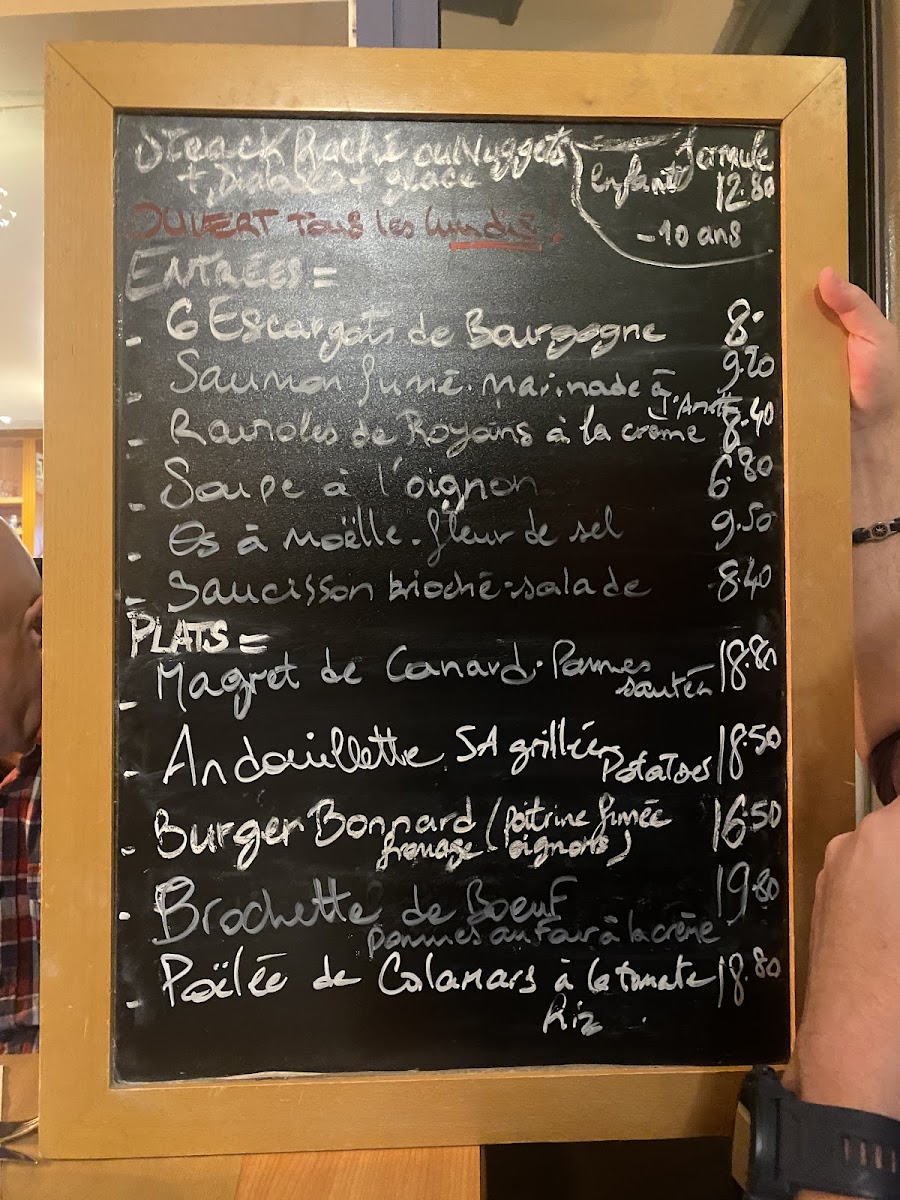 Steack Haché ou Nuggets
+ Diabolo + glace
formule
enfant 12.80
- 10 ans
OUVERT tous les lundis !
ENTRÉES =
- 6 Escargots de Bourgogne 8.-
- Saumon fumé. marinade à l'Aneth 9.20
- Ravioles de Royans à la crème 8.40
- Soupe à l'oignon 6.80
- Os à Moëlle. fleur de sel 9.50
- Saucisson brioché - salade 8.40
PLATS =
- Magret de Canard. Pommes 18.80
sautées
- Andouillette 5A grillée 18.50
Potatoes
- Burger Bonnard (poitrine fumée 16.50
fromage - oignons)
- Brochette de Boeuf 19.80
pommes au four à la crème
- Poëlée de Calamars à la tomate 18.80
Riz